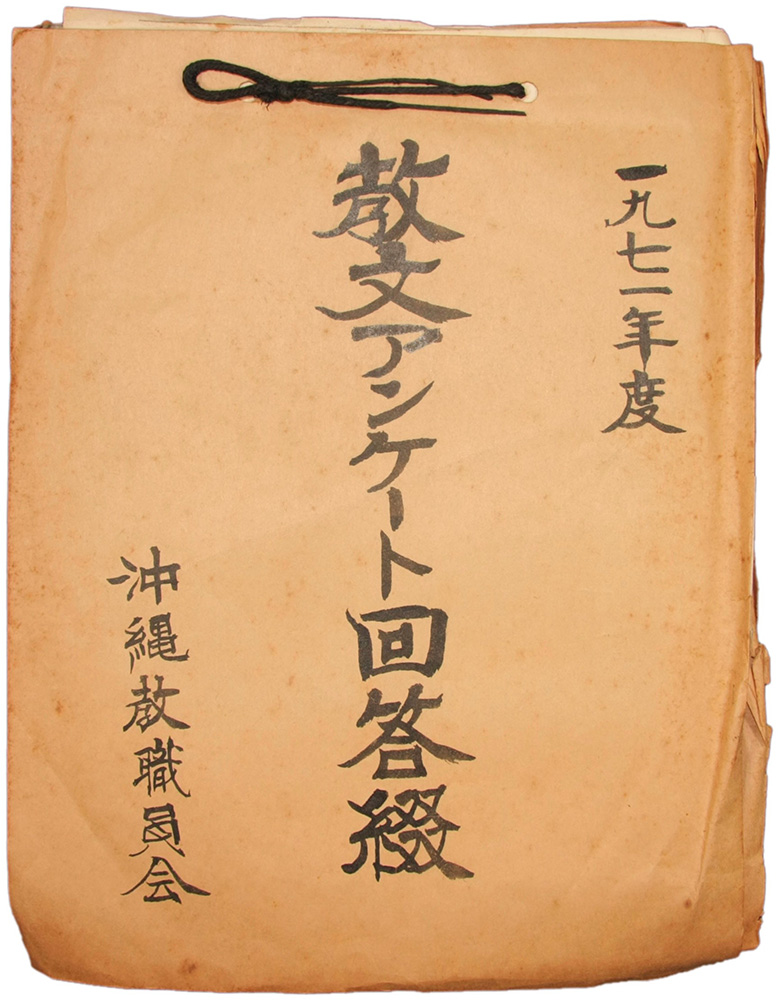 一九七一年度
教文アンケート回答綴
沖縄教職員会